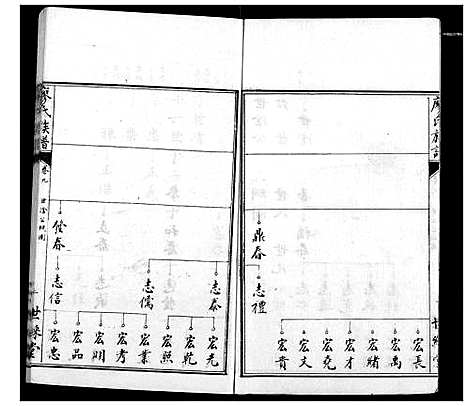 廖氏族譜
鼎春
志禮
宏長
宏萬
宏賭
宏才
宏堯
宏文
宏貴
志泰
志儒
宏光
宏乾
宏照
宏業
宏考
宏明
宏品
宏忠
志信
廖氏族譜
卷九
世綵堂